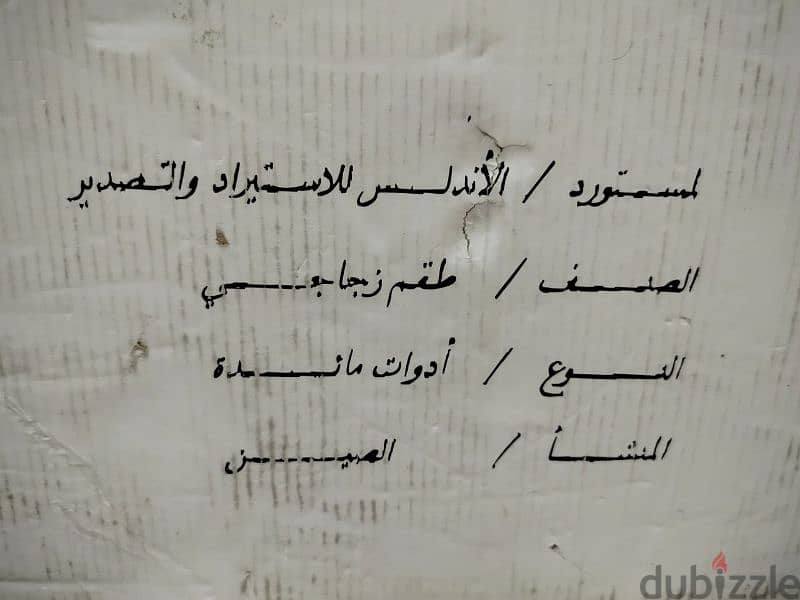 لمستورد / الأندلس للاستيراد والتصدير
الصنف / طقم زجاجي
النوع / أدوات مائدة
المنشأ / الصين
dubizzle